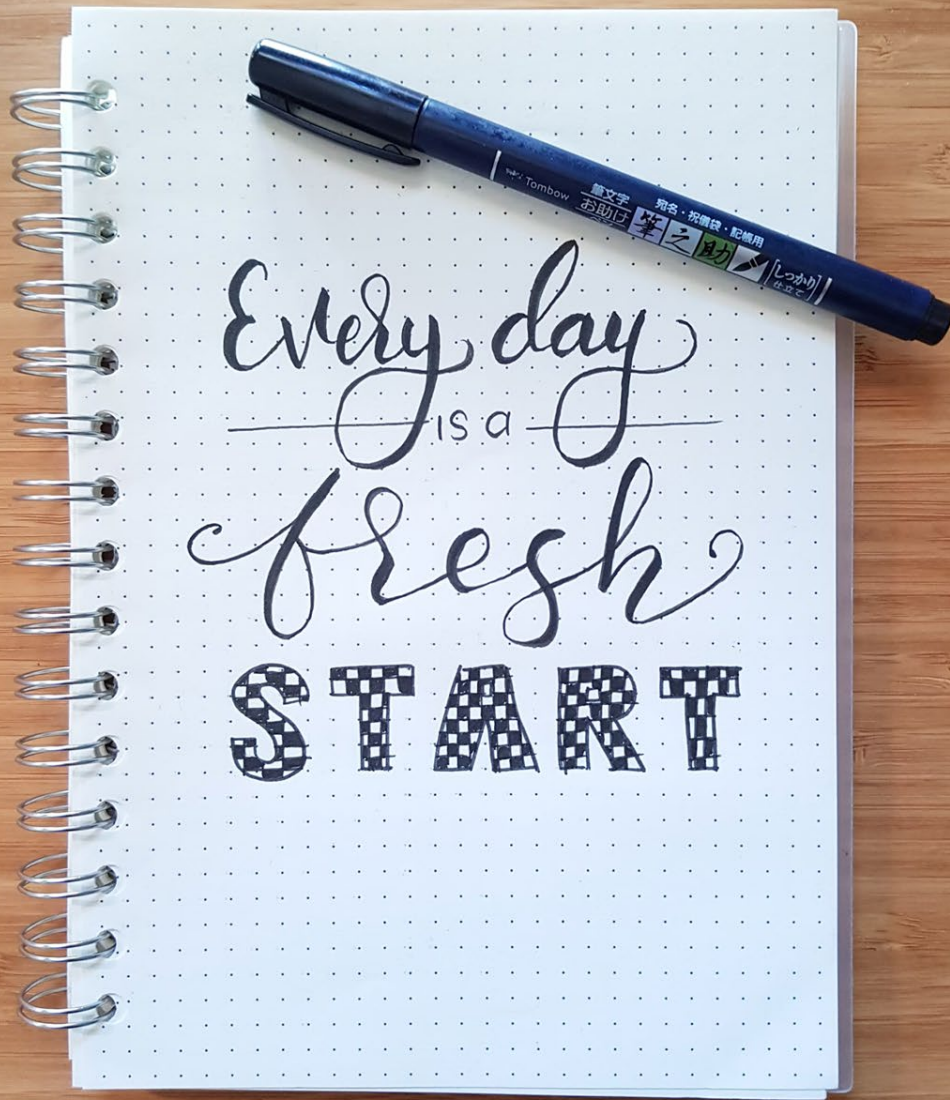 Tombow
筆文字
お助け
筆之助
宛名・祝儀袋・記帳用
しっかり
仕立て
Every day
is a
fresh
START